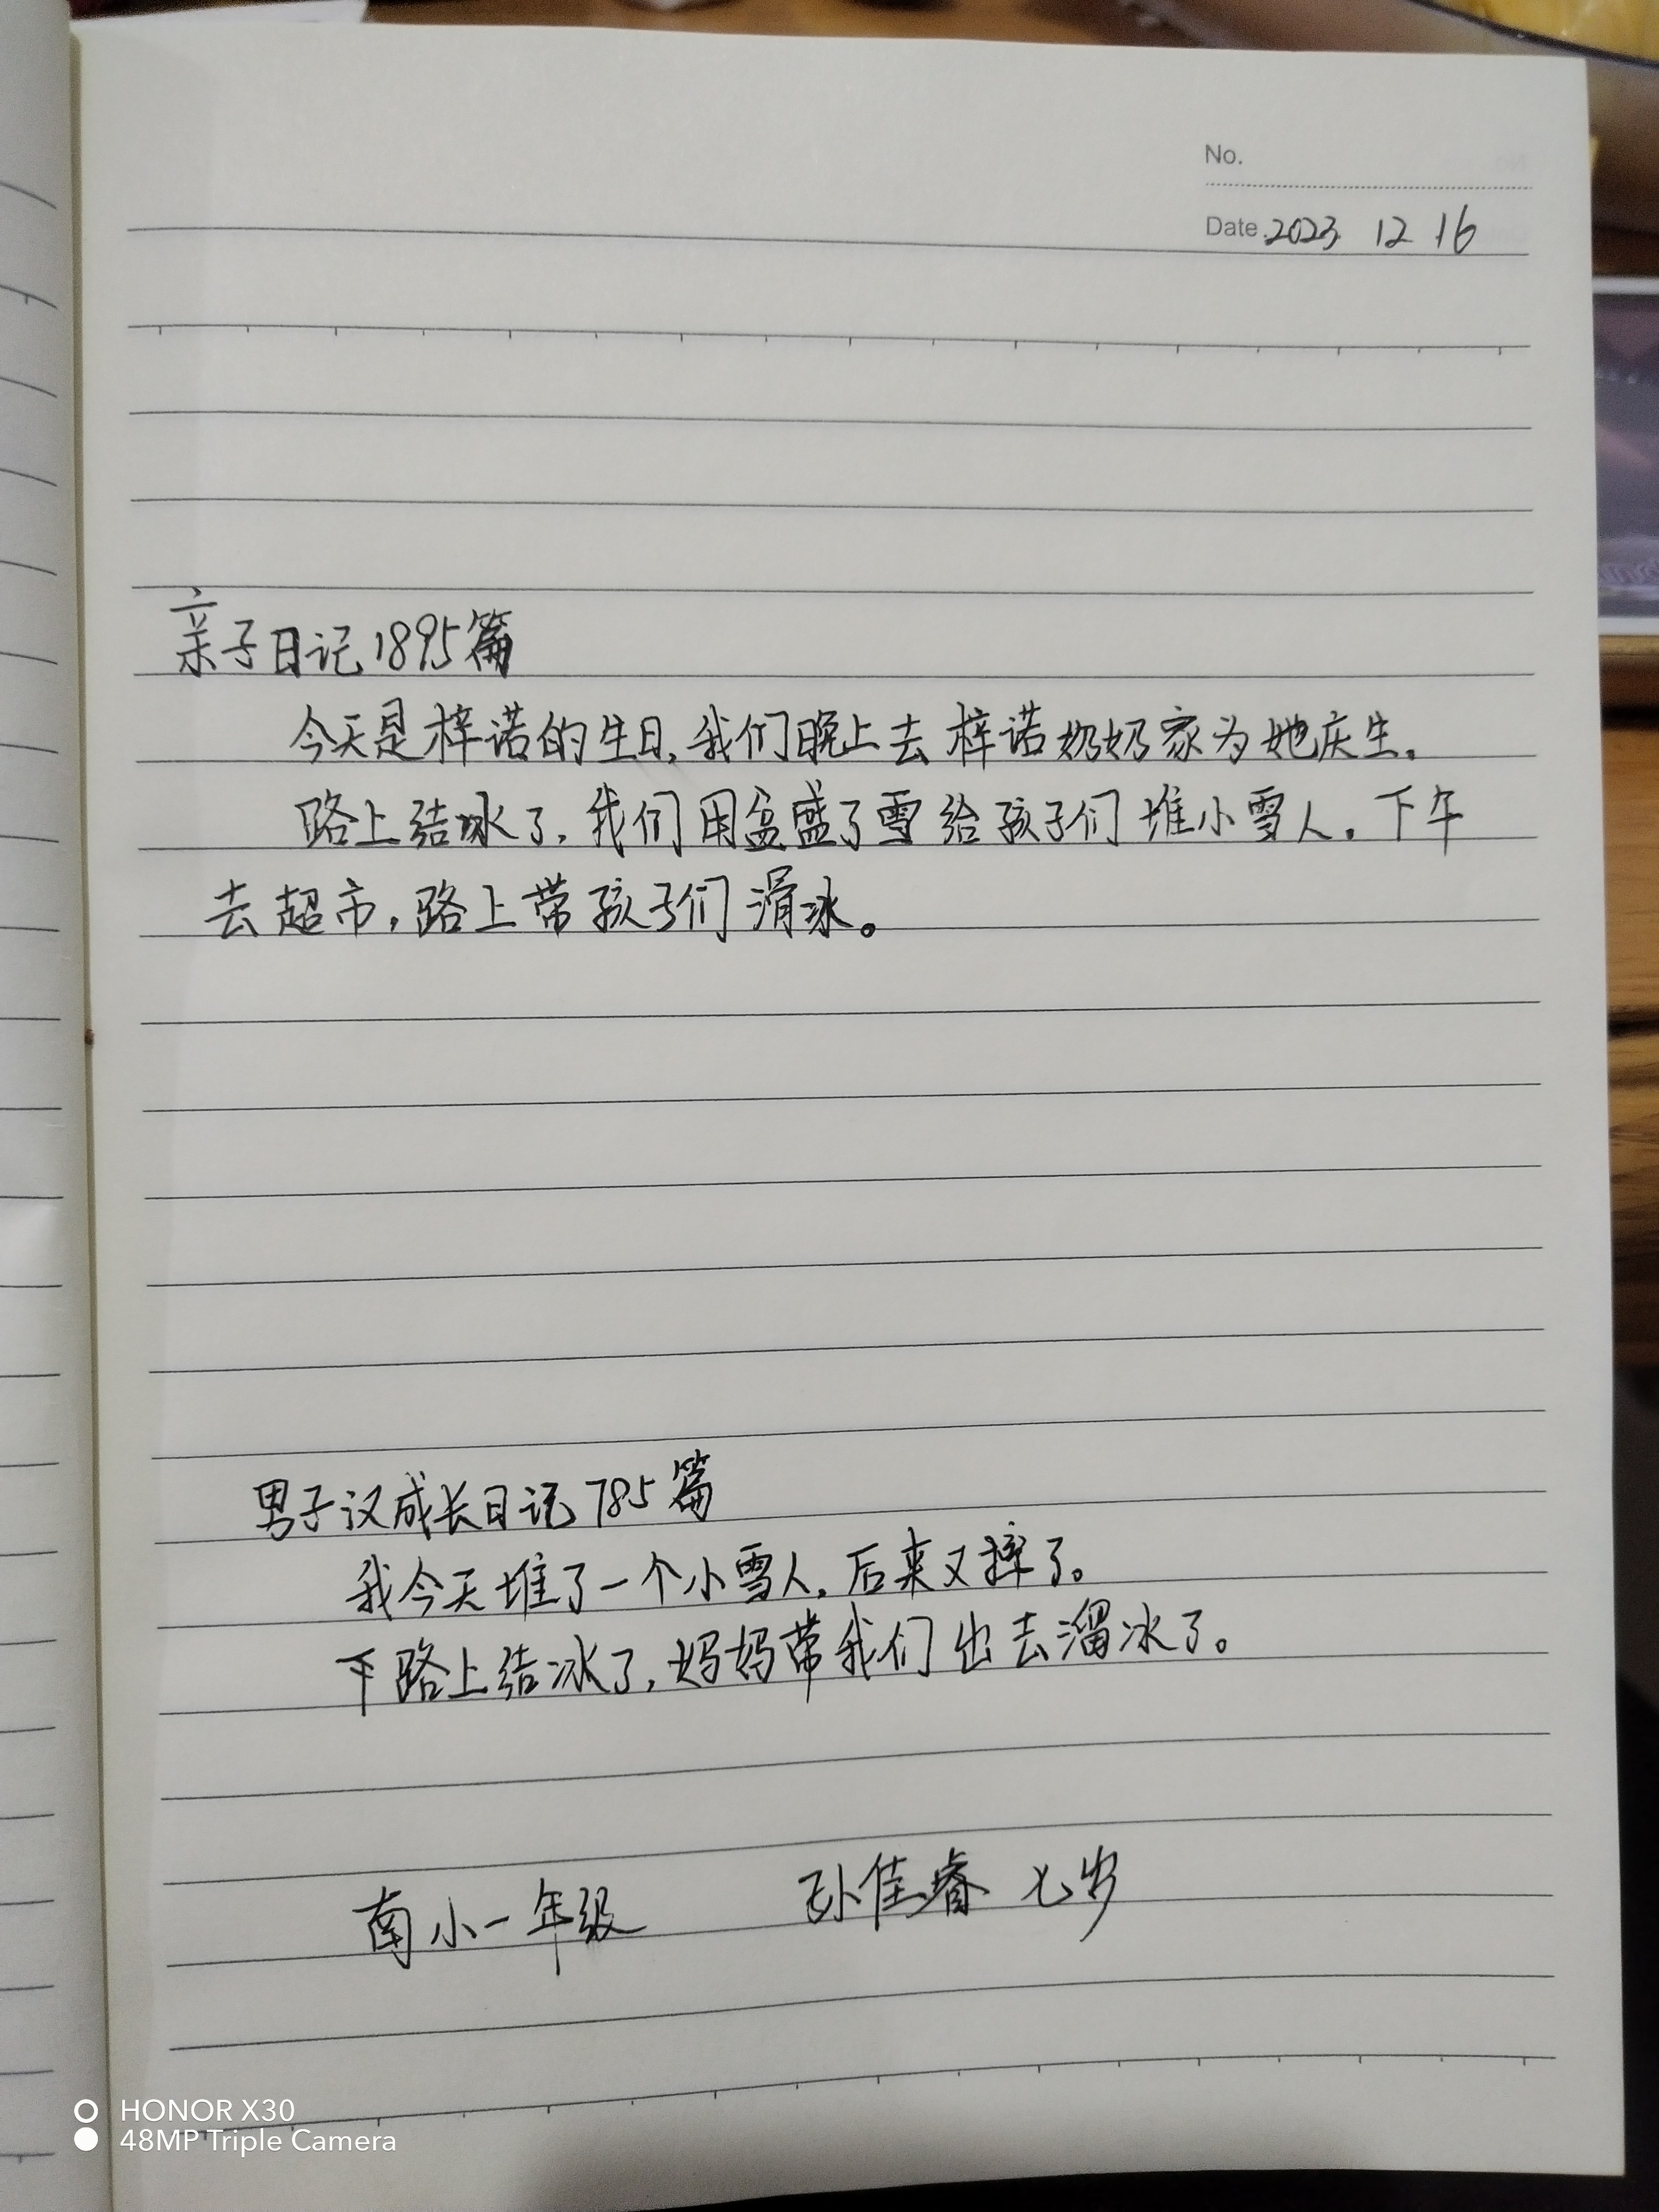 No.
Date 2023 12 16
亲子日记1895篇
今天是梓诺的生日,我们晚上去梓诺奶奶家为她庆生。
路上结冰了,我们用盆盛了雪给孩子们堆小雪人。下午
去超市,路上带孩子们滑冰。
男子汉成长日记785篇
我今天堆了一个小雪人,后来又摔了。
下路上结冰了,妈妈带我们出去溜冰了。
南小一年级 孙佳睿 七岁
HONOR X30
48MP Triple Camera